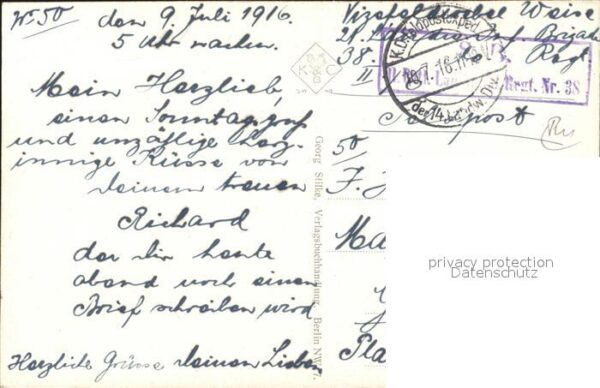 Nr. 50 den 9. Juli 1916.
5 Uhr nachm.
Mein Herzlieb,
einen Sonntagsgruß
und unzählige herz-
innige Küsse von
deinem treuen
Richard
der dir heute
abend noch einen
Brief schreiben wird
Herzliche Grüsse deinen Lieben
Georg Stilke, Verlagsbuchhandlung, Berlin NW. 7.
K C
Vizefeldwebel
38.
II
Regt.
K.D. Feldpostexped.
der 14. Landw. Div.
S.B.
Regt. Nr. 38
Feldpost
50
F.
Ma
Pla
privacy protection
Datenschutz